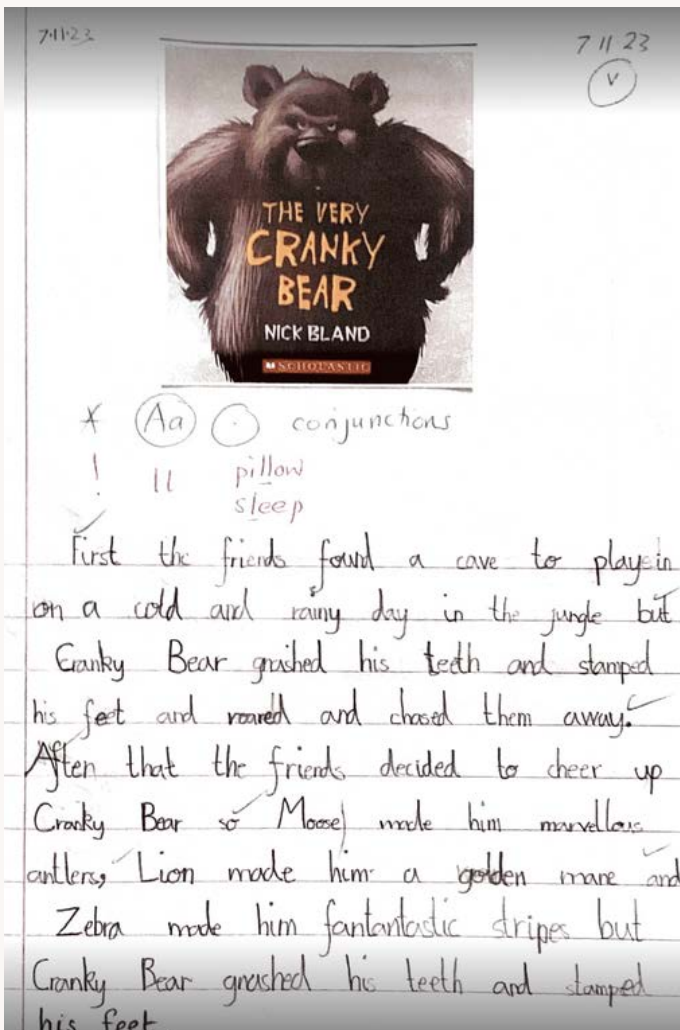 7.11.23
7 11 23
v
THE VERY
CRANKY
BEAR
NICK BLAND
SCHOLASTIC
* Aa . conjunctions
! ll pillow
sleep
First the friends found a cave to play in
on a cold and rainy day in the jungle but
Cranky Bear gnashed his teeth and stamped
his feet and roared and chased them away.
After that the friends decided to cheer up
Cranky Bear so Moose made him marvellous
antlers, Lion made him a golden mane and
Zebra made him fantantastic stripes but
Cranky Bear gnashed his teeth and stamped
his feet